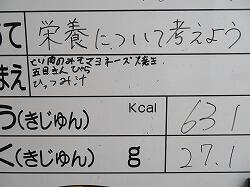 めて 栄養について考えよう
まえ とり肉のみそマヨネーズ焼き
五目きんぴら
ひっつみ汁
Kcal
う(きじゅん) 631
く(きじゅん) g 27.1